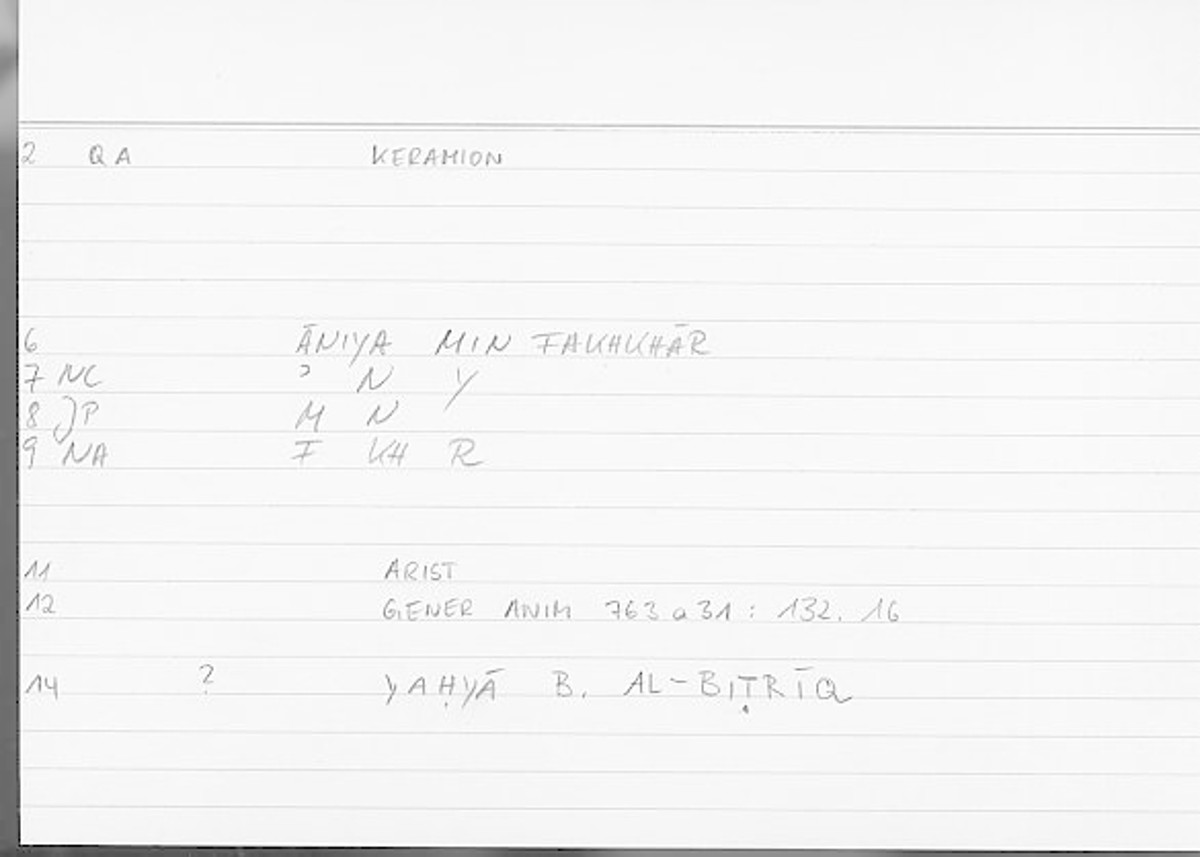 2 QA KERAMION
6 ĀNIYA MIN FAKHKHĀR
7 NC ʾ N Y
8 JP M N
9 NA F KH R
11 ARIST
12 GENER ANIM 763 a 31 : 132. 16
14 ? YAḤYĀ B. AL-BIṬRĪQ